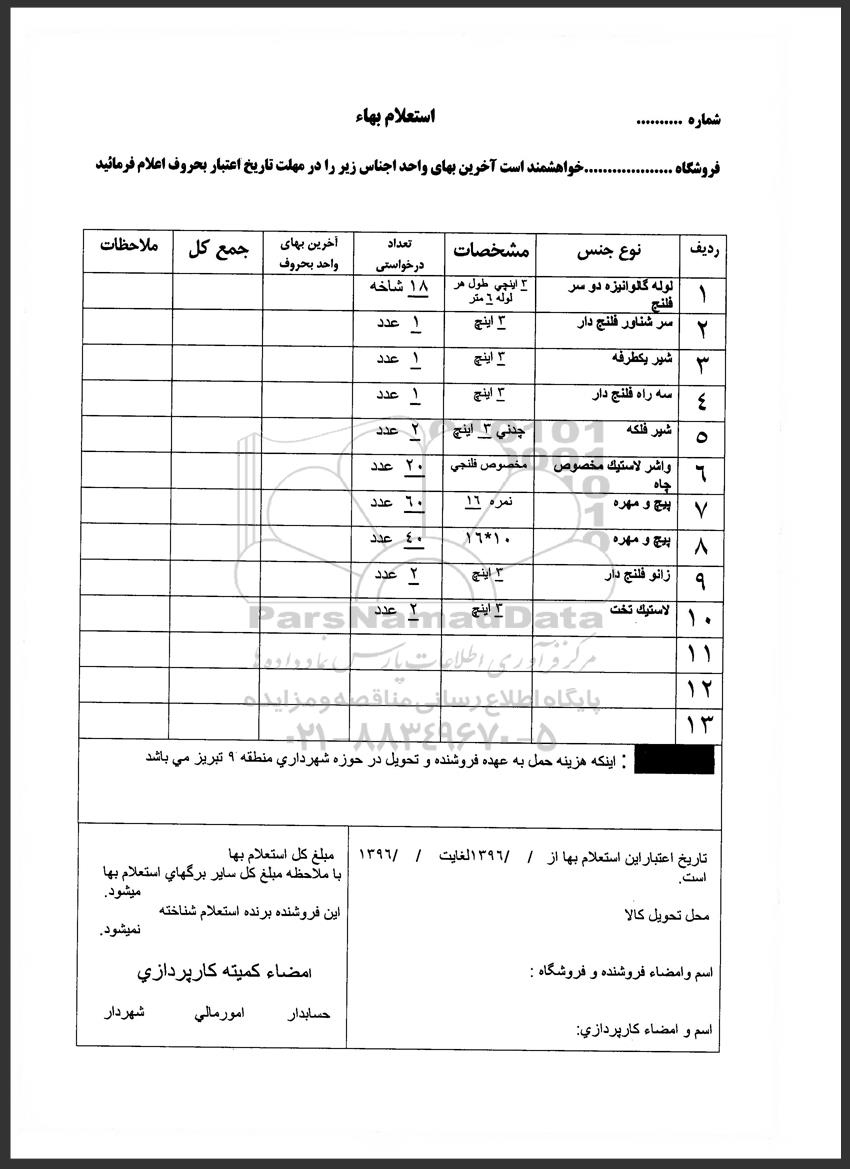 شماره ..........
استعلام بهاء
فروشگاه ...................خواهشمند است آخرین بهای واحد اجناس زیر را در مهلت تاریخ اعتبار بحروف اعلام فرمائید
ردیف نوع جنس مشخصات تعداد درخواستی آخرین بهای واحد بحروف جمع کل ملاحظات
۱ لوله گالوانیزه دو سر فلنج ۳ اینچي طول هر لوله ۶ متر ۱۸ شاخه
۲ سر شناور فلنج دار ۳ اینچ ۱ عدد
۳ شیر یکطرفه ۳ اینچ ۱ عدد
۴ سه راه فلنج دار ۳ اینچ ۱ عدد
۵ شیر فلکه چدني ۳ اینچ ۲ عدد
۶ واشر لاستیك مخصوص چاه مخصوص فلنجي ۲۰ عدد
۷ پیچ و مهره نمره ۱۶ ۶۰ عدد
۸ پیچ و مهره ۱۰*۱۶ ۴۰ عدد
۹ زانو فلنج دار ۳ اینچ ۲ عدد
۱۰ لاستیك تخت ۳ اینچ ۲ عدد
۱۱
۱۲
۱۳
ParsNamadData
مرکز فرآوری اطلاعات پارس نماد داده ها
پایگاه اطلاع رسانی مناقصه و مزایده
۰۲۱-۸۸۳۴۹۶۷۰-۵
: اینکه هزینه حمل به عهده فروشنده و تحویل در حوزه شهرداري منطقه ۹ تبریز مي باشد
تاریخ اعتباراین استعلام بها از / /۱۳۹۶لغایت / /۱۳۹۶
است.
محل تحویل کالا
اسم وامضاء فروشنده و فروشگاه :
اسم و امضاء کارپردازي:
مبلغ کل استعلام بها
با ملاحظه مبلغ کل سایر برگهاي استعلام بها
میشود.
این فروشنده برنده استعلام شناخته
نمیشود.
امضاء کمیته کارپردازي
حسابدار امورمالي شهردار